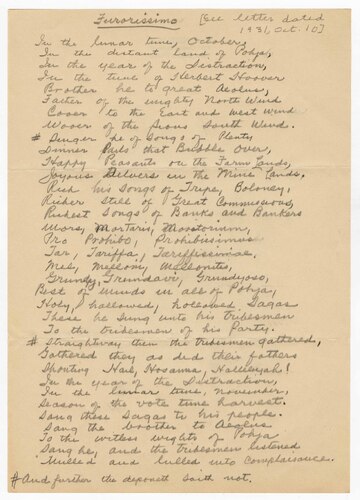 Furorissimo [See letter dated
1931, Oct. 10]
In the lunar time, October,
In the distant land of Pohja,
In the year of the Distraction,
In the time of Herbert Hoover
Brother he to great Aeolus,
Father of the mighty North Wind
Cover to the East and West wind
Wooer of the South Wind.
# Singer he of Songs of Plenty,
Dinner Pails that Bubble Over,
Happy Peasants on the Farm Lands,
Joyous Delvers in the Mine Lands.
Rich his Songs of Tripe, Boloney,
Richer Still of Great Commissions,
Richest Songs of Banks and Bankers
Mors, Mortaris, Moratorium,
Pro Prohibo, Prohibiissimus
Tar, Tariffa, Tariffissimae,
Mel, Mellom, Mellonites,
Grundy, Grundavi, Grundyoso,
Best of Minds in all of Pohja,
Holy, hallowed, hollowed Sagas
These he Sung unto his tribesmen
To the tribesmen of his Party.
# Straightway then the tribesmen gathered,
Gathered they as did their fathers
Shouting Hail, Hosanna, Hallelujah!
In the year of the Distraction,
In the lunar time, November,
Season of the vote time harvest.
Sang these Sagas to his people.
Sang the brother to Aeolus
To the witless wights of Pohja
Sang he, and the tribesmen listened
Mulled and lulled into Complaisance.
# And further the deponent Saith not.